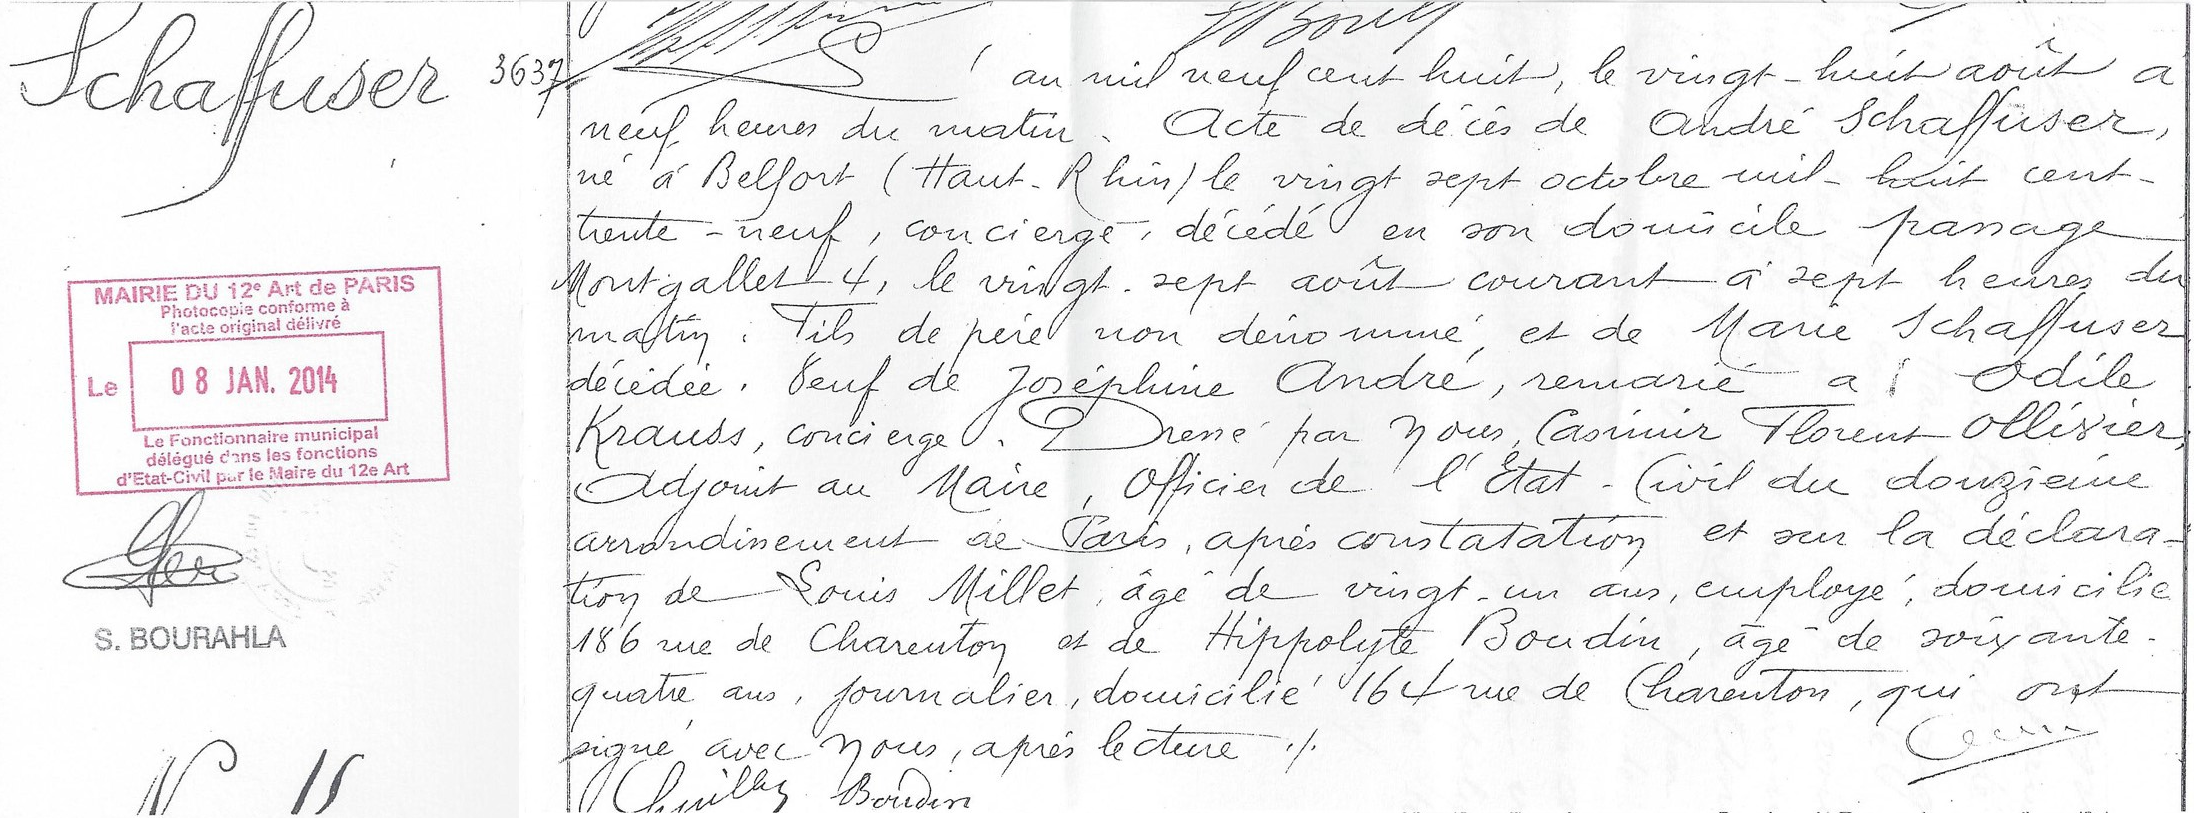 Schaffuser
3637
L'an mil neuf cent huit, le vingt-huit août à
neuf heures du matin. Acte de décès de André Schaffuser,
né à Belfort (Haut-Rhin) le vingt sept octobre mil-huit cent-
trente-neuf, concierge, décédé en son domicile passage
Montgallet 4, le vingt-sept août courant à sept heures du
matin. Fils de père non dénommé, et de Marie Schaffuser
décédée. Veuf de Joséphine André, remarié à Odile
Krauss, concierge. Dressé par Nous, Casimir Florent Ollivier,
Adjoint au Maire, Officier de l'Etat-Civil du douzième
arrondissement de Paris, après constatation et sur la déclara-
tion de Louis Millet, âgé de vingt-un ans, employé, domicilié
186 rue de Charenton et de Hippolyte Boudin, âgé de soixante-
quatre ans, journalier, domicilié 164 rue de Charenton, qui ont
signé avec Nous, après lecture ./.
Boudin
MAIRIE DU 12e Art de PARIS
Photocopie conforme à
l'acte original délivré
Le 08 JAN. 2014
Le Fonctionnaire municipal
délégué dans les fonctions
d'Etat-Civil par le Maire du 12e Art
S. BOURAHLA